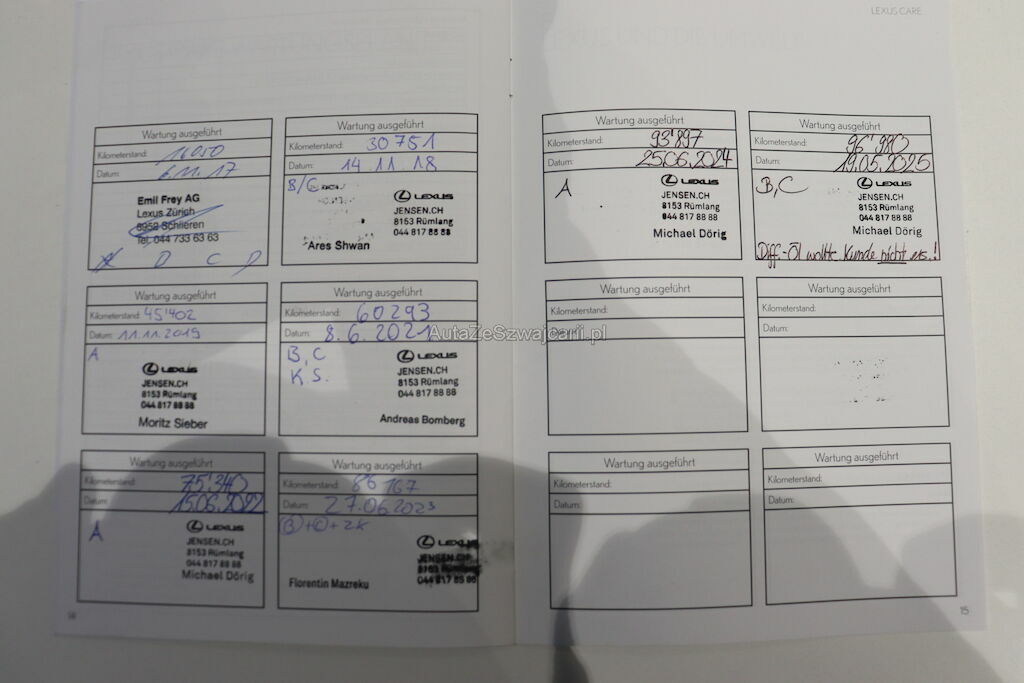 LEXUS CARE
Wartung ausgeführt
Kilometerstand: 16050
Datum: 6.11.17
Emil Frey AG
Lexus Zürich
8952 Schlieren
Tel. 044 733 63 63
Wartung ausgeführt
Kilometerstand: 30 751
Datum: 14 11 18
B/C
LEXUS
JENSEN.CH
8153 Rümlang
044 817 88 88
Ares Shwan
Wartung ausgeführt
Kilometerstand: 45'402
Datum: 11.11.2019
A
LEXUS
JENSEN.CH
8153 Rümlang
044 817 88 88
Moritz Sieber
Wartung ausgeführt
Kilometerstand: 60293
Datum: 8.6.2021
B, C
K.S.
LEXUS
JENSEN.CH
8153 Rümlang
044 817 88 88
Andreas Bomberg
Wartung ausgeführt
Kilometerstand: 75'340
Datum: 15.06.2022
A
LEXUS
JENSEN.CH
8153 Rümlang
044 817 88 88
Michael Dörig
Wartung ausgeführt
Kilometerstand: 86 167
Datum: 27.06.2023
(B)+(C)+ZK
LEXUS
JENSEN.CH
8153 Rümlang
044 817 88 88
Florentin Mazreku
14
Wartung ausgeführt
Kilometerstand: 93'897
Datum: 25.06.2024
A
LEXUS
JENSEN.CH
8153 Rümlang
044 817 88 88
Michael Dörig
Wartung ausgeführt
Kilometerstand: 96'980
Datum: 19.05.2025
B, C
LEXUS
JENSEN.CH
8153 Rümlang
044 817 88 88
Michael Dörig
Diff.-Öl wollte Kunde nicht ers.!
Wartung ausgeführt
Kilometerstand:
Datum:
Wartung ausgeführt
Kilometerstand:
Datum:
Wartung ausgeführt
Kilometerstand:
Datum:
Wartung ausgeführt
Kilometerstand:
Datum:
15
AutaZeSzwajcarii.pl